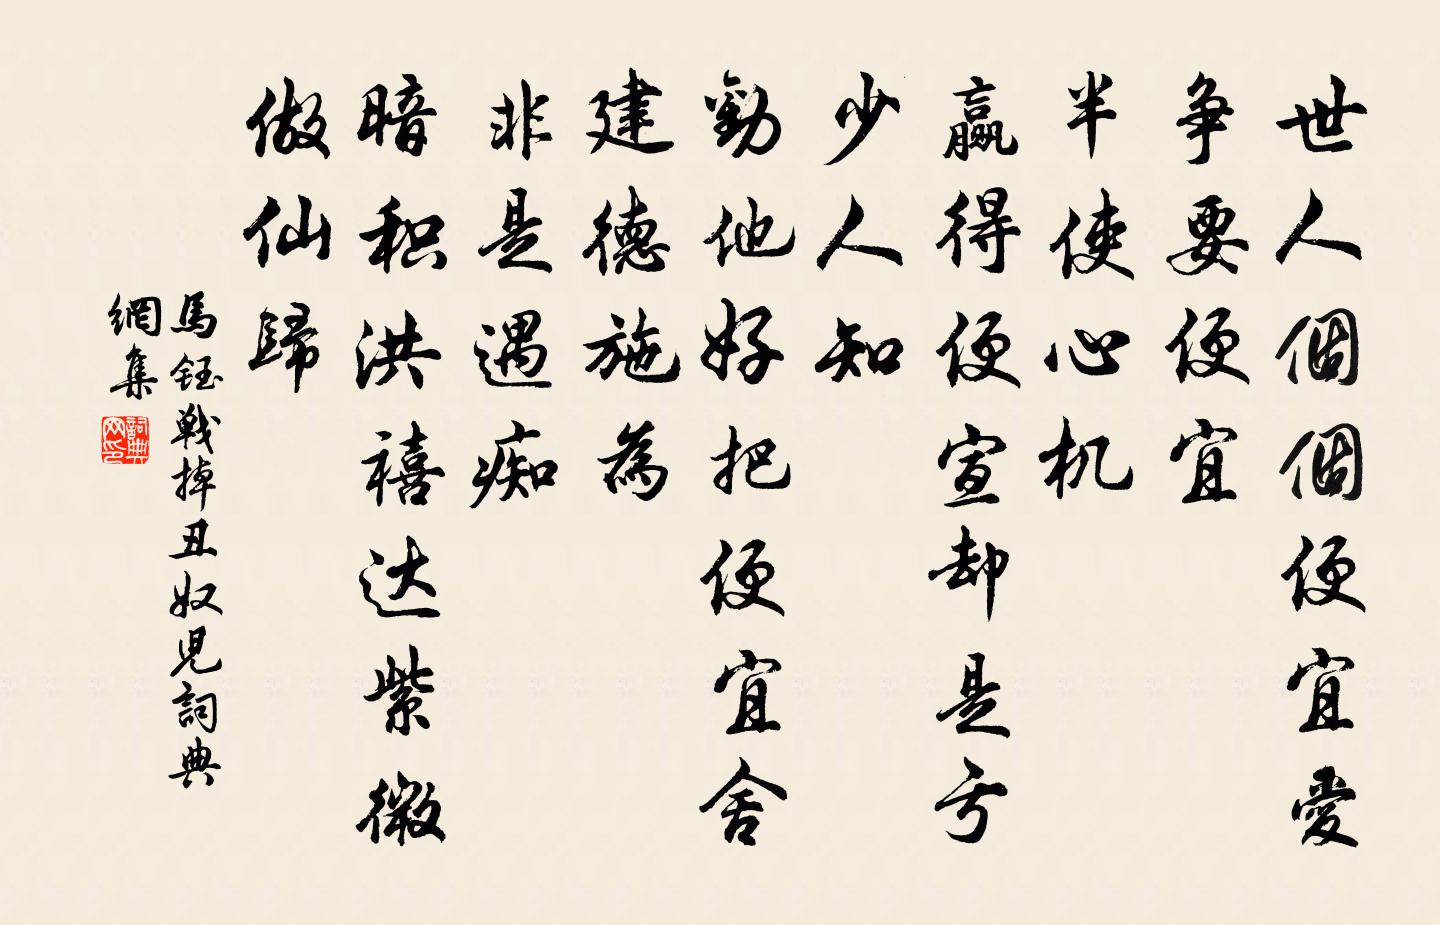 世人個個便宜愛
争要便宜
半使心机
贏得便宣却是亏
少人知
勸他好把便宜舍
建德施為
非是遇痴
暗积洪禧达紫微
做仙歸
馬鈺戰掉丑奴兒詞典
網集
詞典
网印